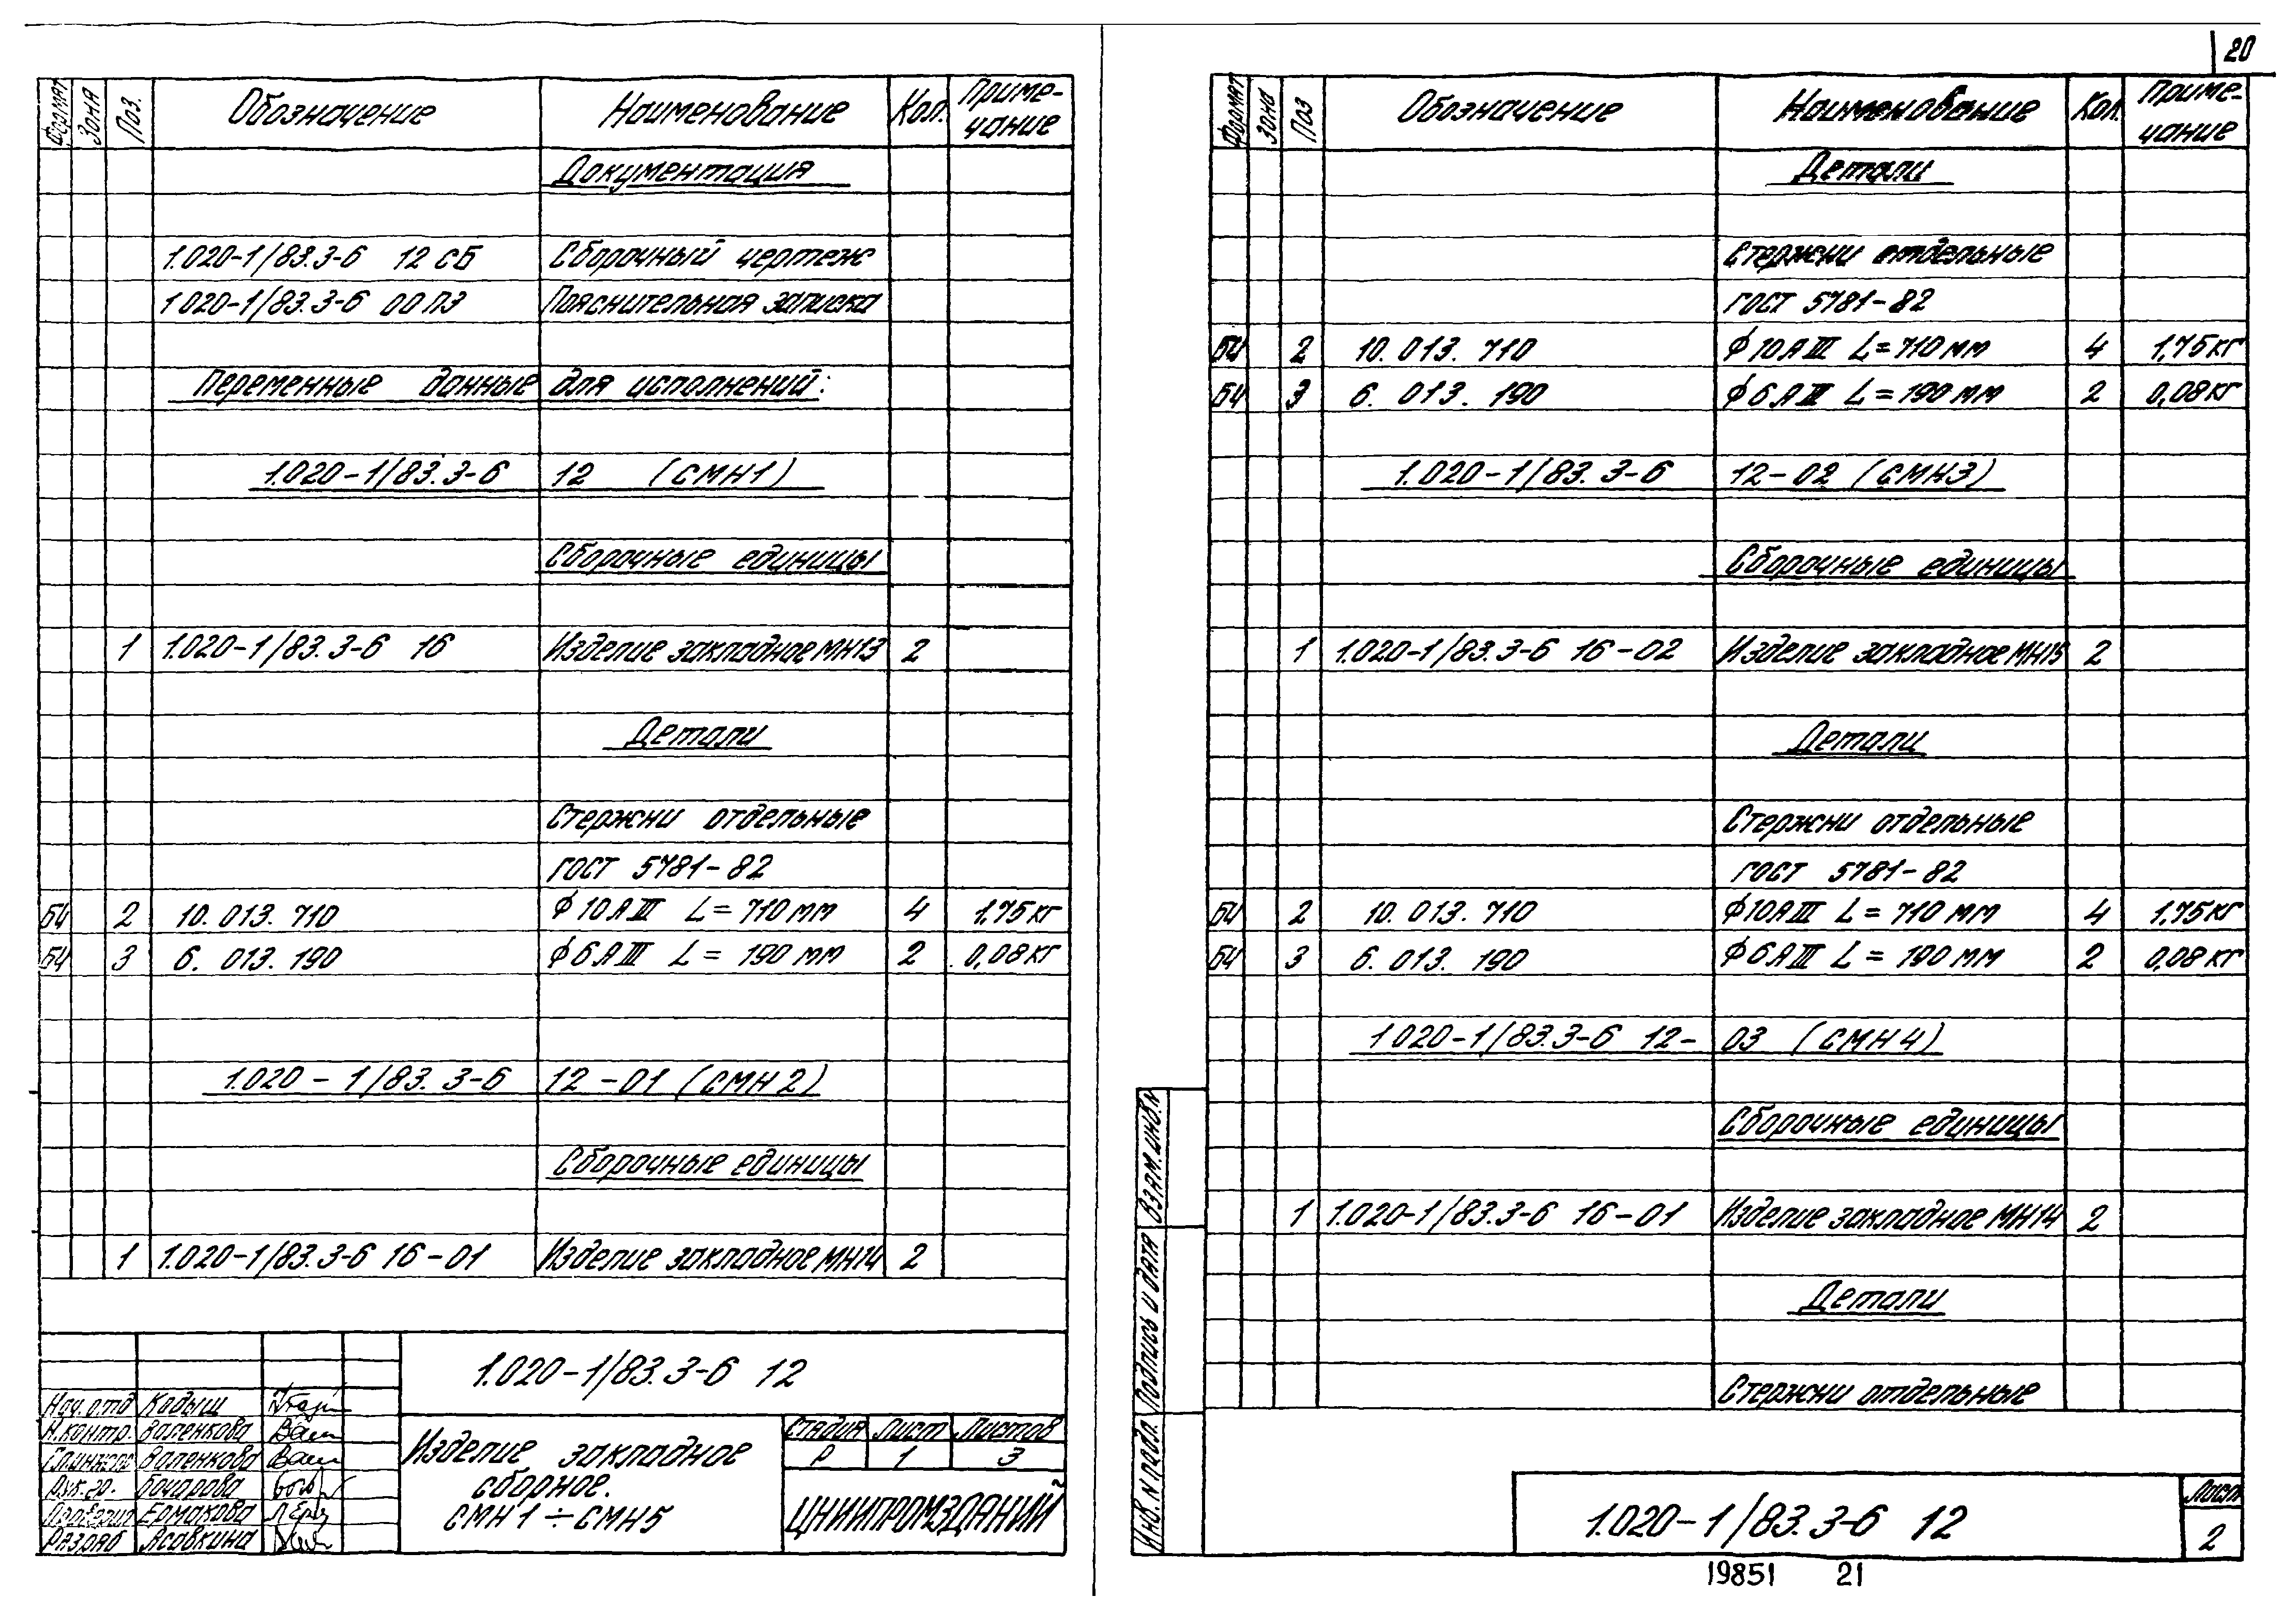 20
Формат Зона Поз. Обозначение Наименование Кол. Приме-
чание
Документация
1.020-1/83.3-6 12 СБ Сборочный чертеж
1.020-1/83.3-6 00 ПЗ Пояснительная записка
Переменные данные для исполнений:
1.020-1/83.3-6 12 (СМН1)
Сборочные единицы
1 1.020-1/83.3-6 16 Изделие закладное МН13 2
Детали
Стержни отдельные
ГОСТ 5781-82
БЧ 2 10.013.710 ϕ10АIII L=710мм 4 1,75кг
БЧ 3 6.013.190 ϕ6АIII L=190мм 2 0,08кг
1.020-1/83.3-6 12-01 (СМН2)
Сборочные единицы
1 1.020-1/83.3-6 16-01 Изделие закладное МН14 2
1.020-1/83.3-6 12
Нач.отд Кодыш
Н.контр. Валенкова
Валенкова
Рук.гр. Бочарова
Проверил Ермакова
Разраб Ясавкина
Изделие закладное
сборное.
СМН1÷СМН5
Стадия Лист Листов
Р 1 3
ЦНИИПРОМЗДАНИЙ
Формат Зона Поз Обозначение Наименование Кол. Приме-
чание
Детали
Стержни отдельные
ГОСТ 5781-82
БЧ 2 10.013.710 ϕ10АIII L=710мм 4 1,75кг
БЧ 3 6.013.190 ϕ6АIII L=190мм 2 0,08кг
1.020-1/83.3-6 12-02 (СМН3)
Сборочные единицы
1 1.020-1/83.3-6 16-02 Изделие закладное МН15 2
Детали
Стержни отдельные
ГОСТ 5781-82
БЧ 2 10.013.710 ϕ10АIII L=710мм 4 1,75кг
БЧ 3 6.013.190 ϕ6АIII L=190мм 2 0,08кг
1.020-1/83.3-6 12-03 (СМН4)
Сборочные единицы
1 1.020-1/83.3-6 16-01 Изделие закладное МН14 2
Детали
Стержни отдельные
Инв.N подл. Подпись и дата Взам.инв.N
1.020-1/83.3-6 12
Лист
2
19851 21